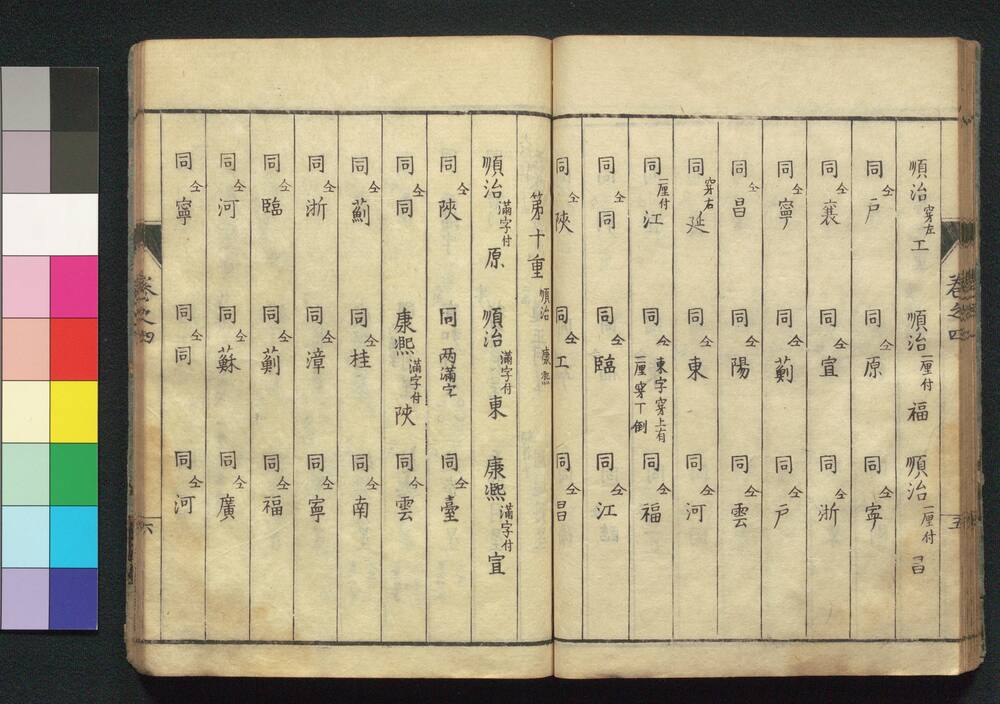 順治 穿左 工 順治 一厘付 福 順治 一厘付 昌
同 仝 戸 同 仝 原 同 仝 寧
同 仝 襄 同 仝 宣 同 仝 浙
同 仝 寧 同 仝 薊 同 仝 戸
同 仝 昌 同 仝 陽 同 仝 雲
同 穿右 延 同 仝 東 同 仝 河
同 一厘付 江 同 仝 東字穿上有一厘穿丅倒 同 仝 福
同 仝 同 同 仝 臨 同 仝 江
同 仝 陝 同 仝 工 同 仝 昌
卷之四 五
第十重 順治 康熙
順治 滿字付 原 順治 滿字付 東 康熙 滿字付 宣
同 仝 陝 同 両滿字 同 仝 臺
同 仝 同 康熙 滿字付 陝 同 仝 雲
同 仝 薊 同 仝 桂 同 仝 南
同 仝 浙 同 仝 漳 同 仝 寧
同 仝 臨 同 仝 薊 同 仝 福
同 仝 河 同 仝 蘇 同 仝 廣
同 仝 寧 同 仝 同 同 仝 河
卷之四 六